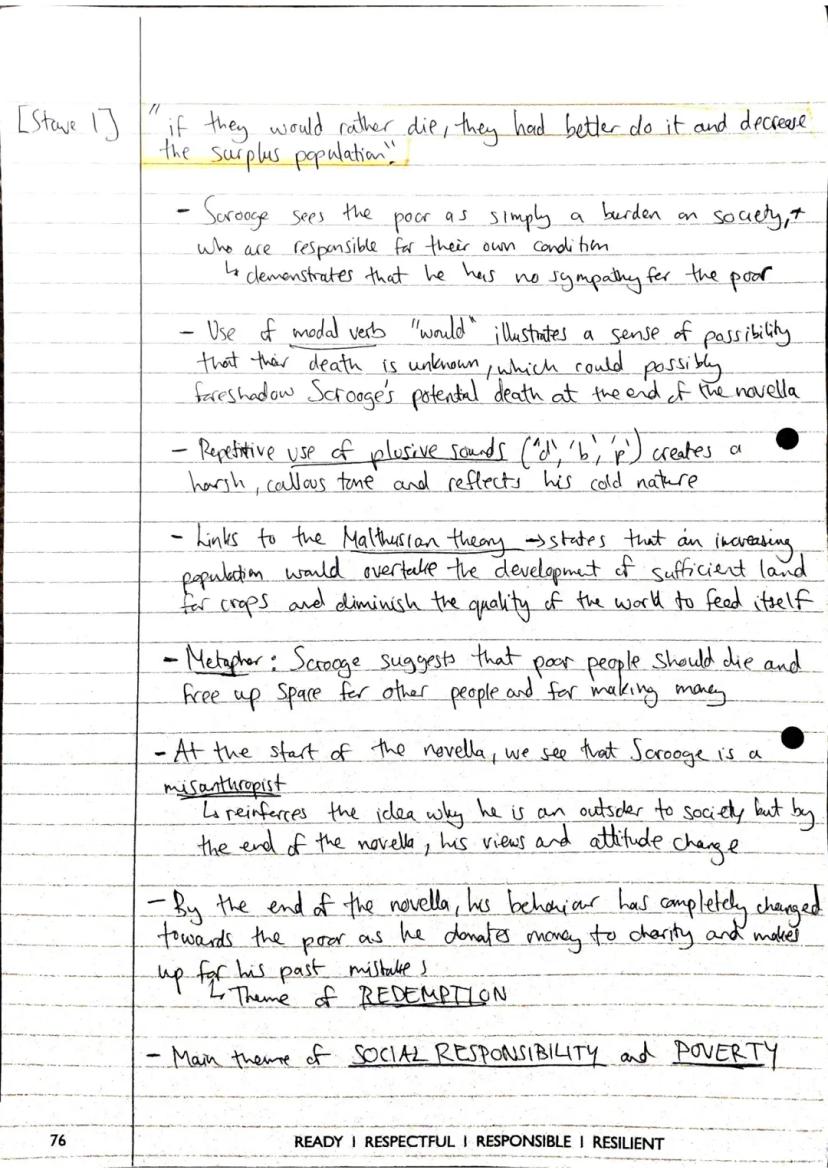 [Stave 1]
"if they would rather die, they had better do it and decrease
the surplus population".
- Scrooge sees the poor as simply a burden on society, +
who are responsible for their own condition
↳ demonstrates that he has no sympathy for the poor
- Use of modal verb "would" illustrates a sense of possibility
that their death is unknown, which could possibly
foreshadow Scrooge's potential death at the end of the novella
- Repetitive use of plosive sounds ('d', 'b', 'p') creates a
harsh, callous tone and reflects his cold nature
- Links to the Malthusian theory → states that an increasing
population would overtake the development of sufficient land
for crops and diminish the quality of the world to feed itself
- Metapher: Scrooge suggests that poor people should die and
free up space for other people and for making money
- At the start of the novella, we see that Scrooge is a
misanthropist
↳ reinforces the idea why he is an outsder to society but by
the end of the novella, his views and attitude change
- By the end of the novella, his behaviar has completely changed
towards the poor as he donates money to charity and makes
up for his past mistakes
↳ Theme of REDEMPTION
- Main theme of SOCIAL RESPONSIBILITY and POVERTY
76
READY | RESPECTFUL | RESPONSIBLE | RESILIENT